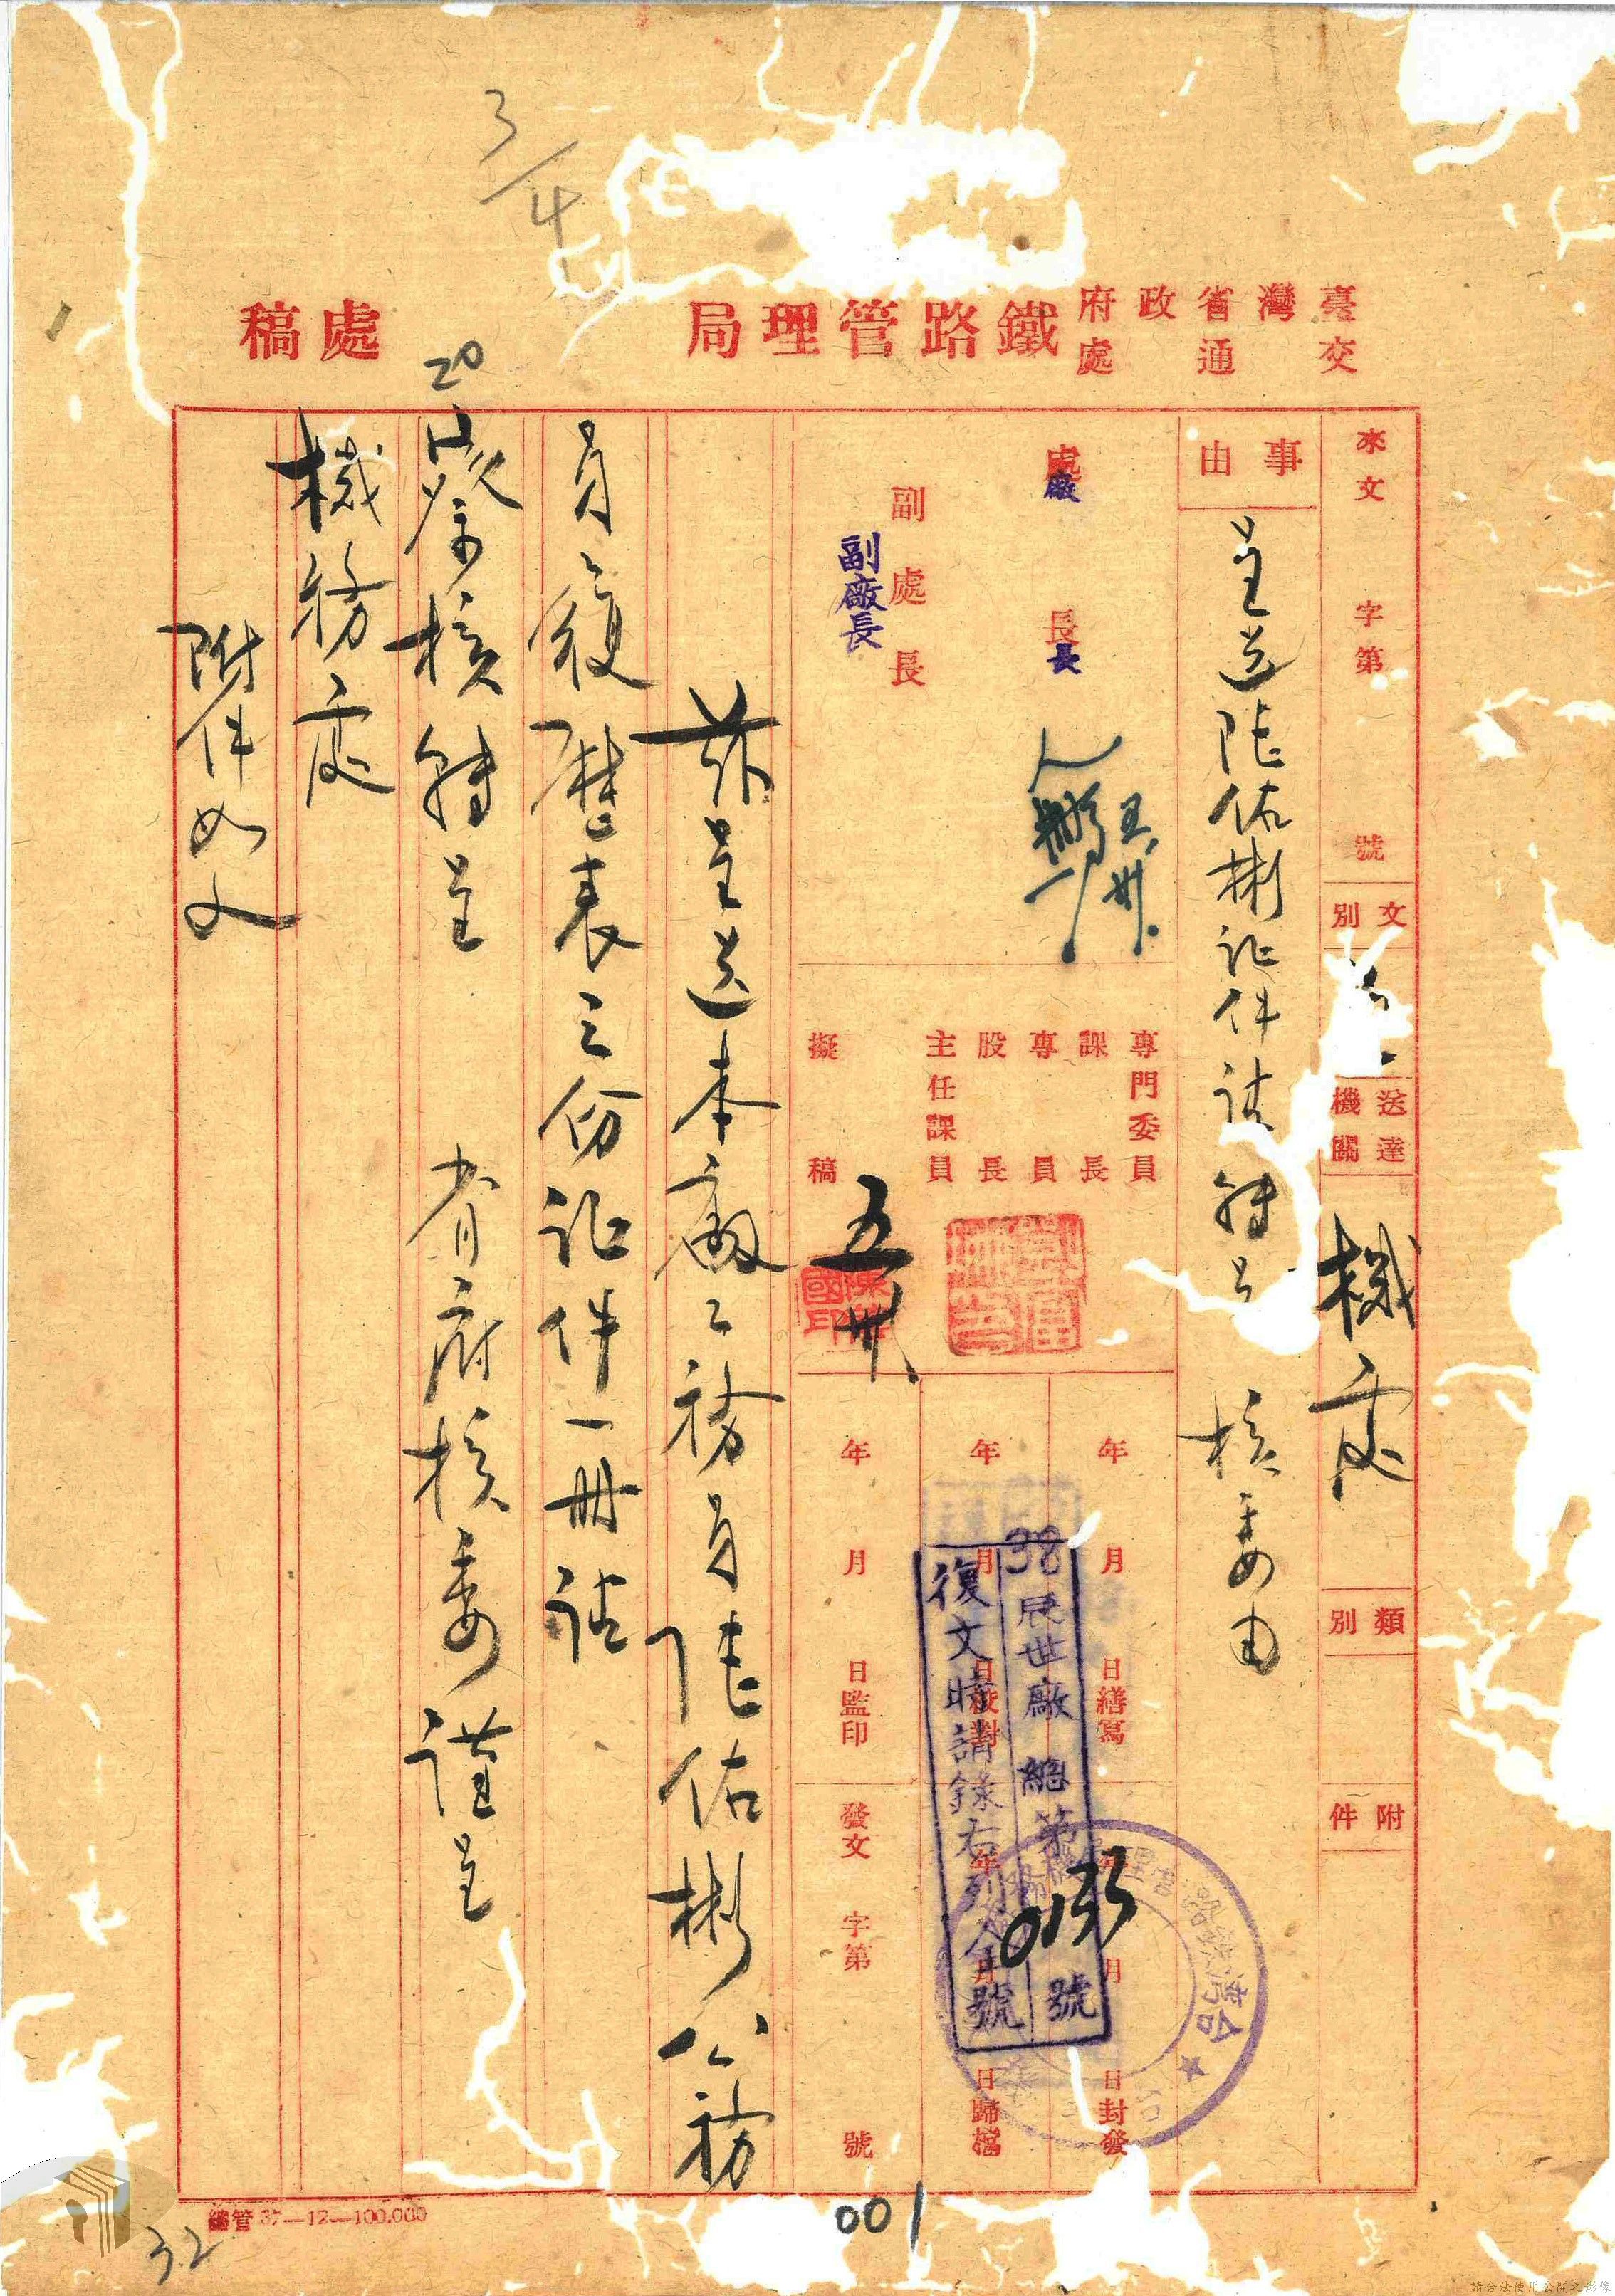 3/4
臺灣省政府交通處鐵路管理局
處稿
來文 字第 號
文別
送達機關
機處
類別
附件
事由
呈送陸佑彬証件請轉呈 核委由
處長
廠長
副處長
副廠長
專門委員
課長
專員
股長
主任課員
擬稿
五 卅
年 月 日繕寫
年 月 日校對
年 月 日監印
年 月 日封發
年 月 日歸檔
發文 字第 號
38 展世廠總第0133號
復文時請錄右列全號
茲呈送本廠工務員陸佑彬公務
員履歷表三份証件一冊請
20
察核轉呈 省府核委謹呈
機務處
附件如文
總管 37—12—100,000
001
32
請合法使用公開之影像